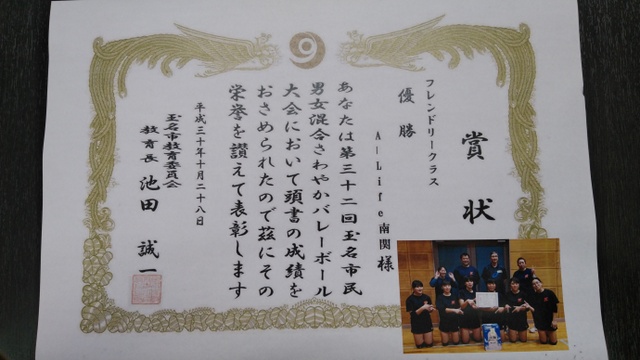 賞状
フレンドリークラス
優勝
A-Life南関様
あなたは第三十二回玉名市民
男女混合さわやかバレーボール
大会において頭書の成績を
おさめられたので茲にその
栄誉を讃えて表彰します
平成三十年十月二十八日
玉名市教育委員会
教育長 池田誠一